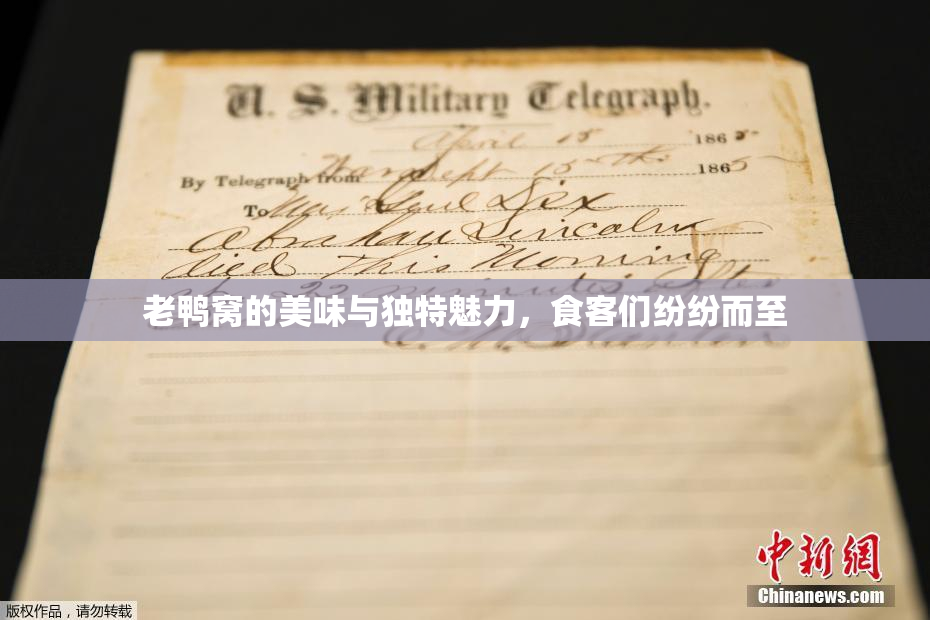 U. S. Military Telegraph.
April 15 1865
By Telegraph from War Dept 15th 1865
To Maj Genl Dix
Abraham Lincoln
died This Morning
at 22 minutes after
老鸭窝的美味与独特魅力，食客们纷纷而至
E. M. Stanton
中新网
Chinanews.com
版权作品，请勿转载